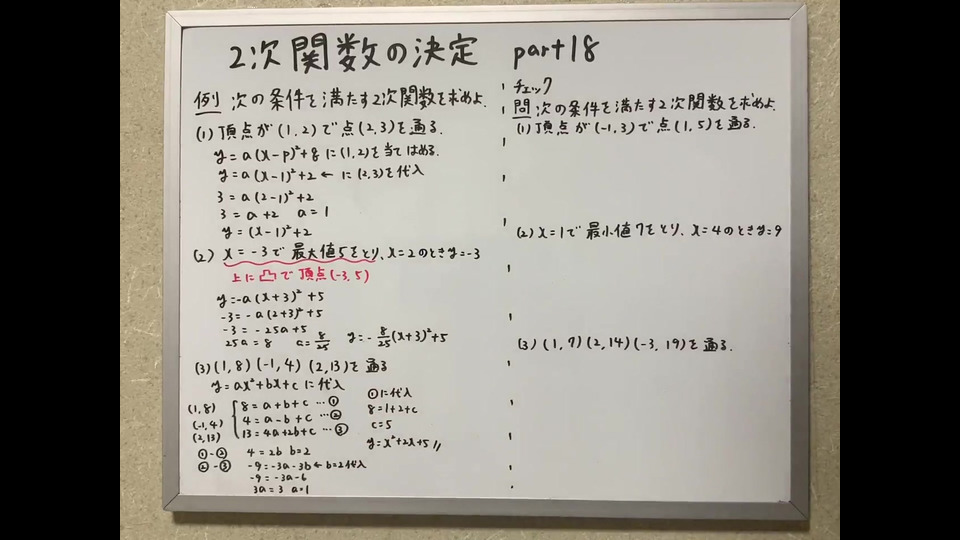 2次関数の決定 part18
例 次の条件を満たす2次関数を求めよ.
(1) 頂点が(1,2)で点(2,3)を通る.
y=a(x-p)²+8に(1,2)を当てはめる.
y=a(x-1)²+2 ← に(2,3)を代入
3=a(2-1)²+2
3=a+2 a=1
y=(x-1)²+2
(2) x=-3で最大値5をとり、x=2のときy=-3
上に凸で頂点(-3,5)
y=-a(x+3)²+5
-3=-a(2+3)²+5
-3=-25a+5
25a=8 a=8/25 y=-8/25(x+3)²+5
(3) (1,8)(-1,4)(2,13)を通る
y=ax²+bx+cに代入
(1,8) 8=a+b+c…①
(-1,4) 4=a-b+c…②
(2,13) 13=4a+2b+c…③
①-② 4=2b b=2
②-③ -9=-3a-3b ← b=2代入
-9=-3a-6
3a=3 a=1
①に代入
8=1+2+c
c=5
y=x²+2x+5〃
チェック
問 次の条件を満たす2次関数を求めよ.
(1) 頂点が(-1,3)で点(1,5)を通る.
(2) x=1で最小値7をとり、x=4のときy=9
(3) (1,7)(2,14)(-3,19)を通る.